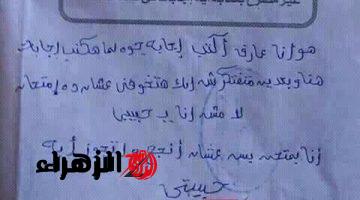 هو انا عارف أكتب إجابه جوه لما هكتب إجابه
هنا وبعدين متفتكرش إنك هتخوفنى عشان ده إمتحان
لا مش أنا يـ حبيبى
أنا بمتحن بس عشان أنجح و أتجوز أية
حبيبتى
الزهراء